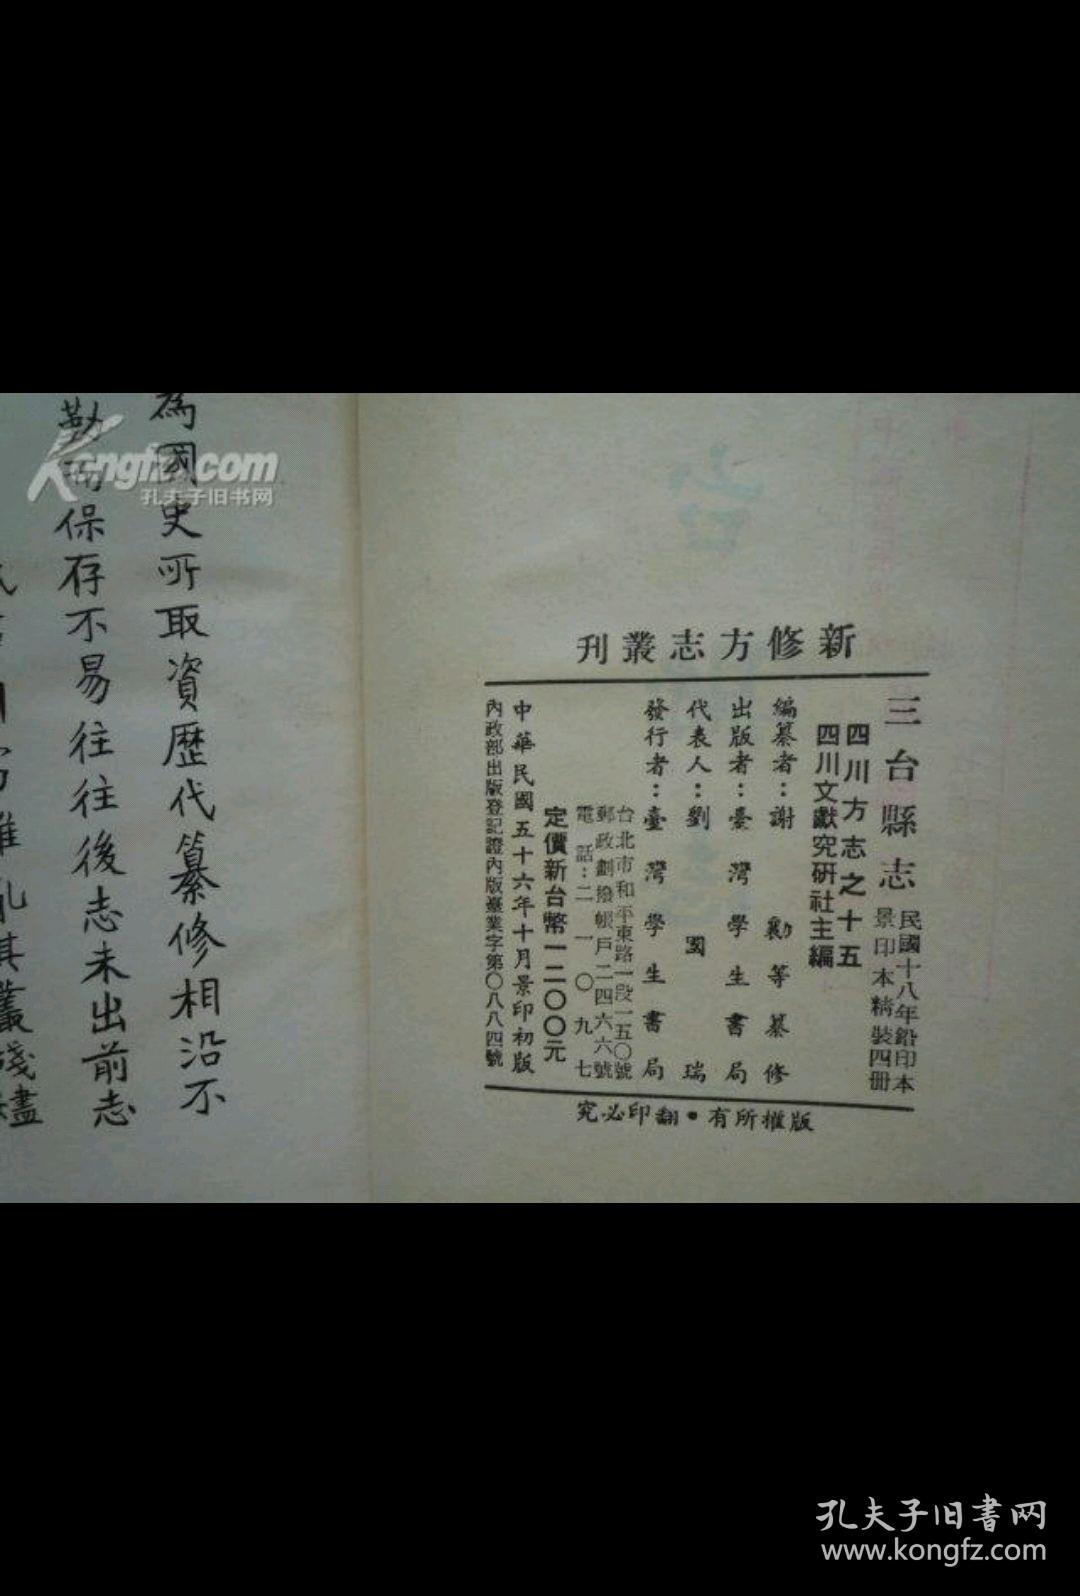 新修方志叢刊
三台縣志
民國十八年鉛印本
景印本精裝四册
四川方志之十五
四川文獻研究社主編
編纂者：謝勷等纂修
出版者：臺灣學生書局
代表人：劉國瑞
發行者：臺灣學生書局
台北市和平東路一段一五〇號
郵政劃撥帳戶二四六六號
電話：二一〇九七
定價新台幣一二〇〇元
中華民國五十六年十月景印初版
內政部出版登記證內版臺業字第〇八八四號
版權所有•翻印必究
為國史所取資歷代纂修相沿不
保存不易往往後志未出前志
Kongfz.com
孔夫子旧书网
孔夫子旧書网
www.kongfz.com